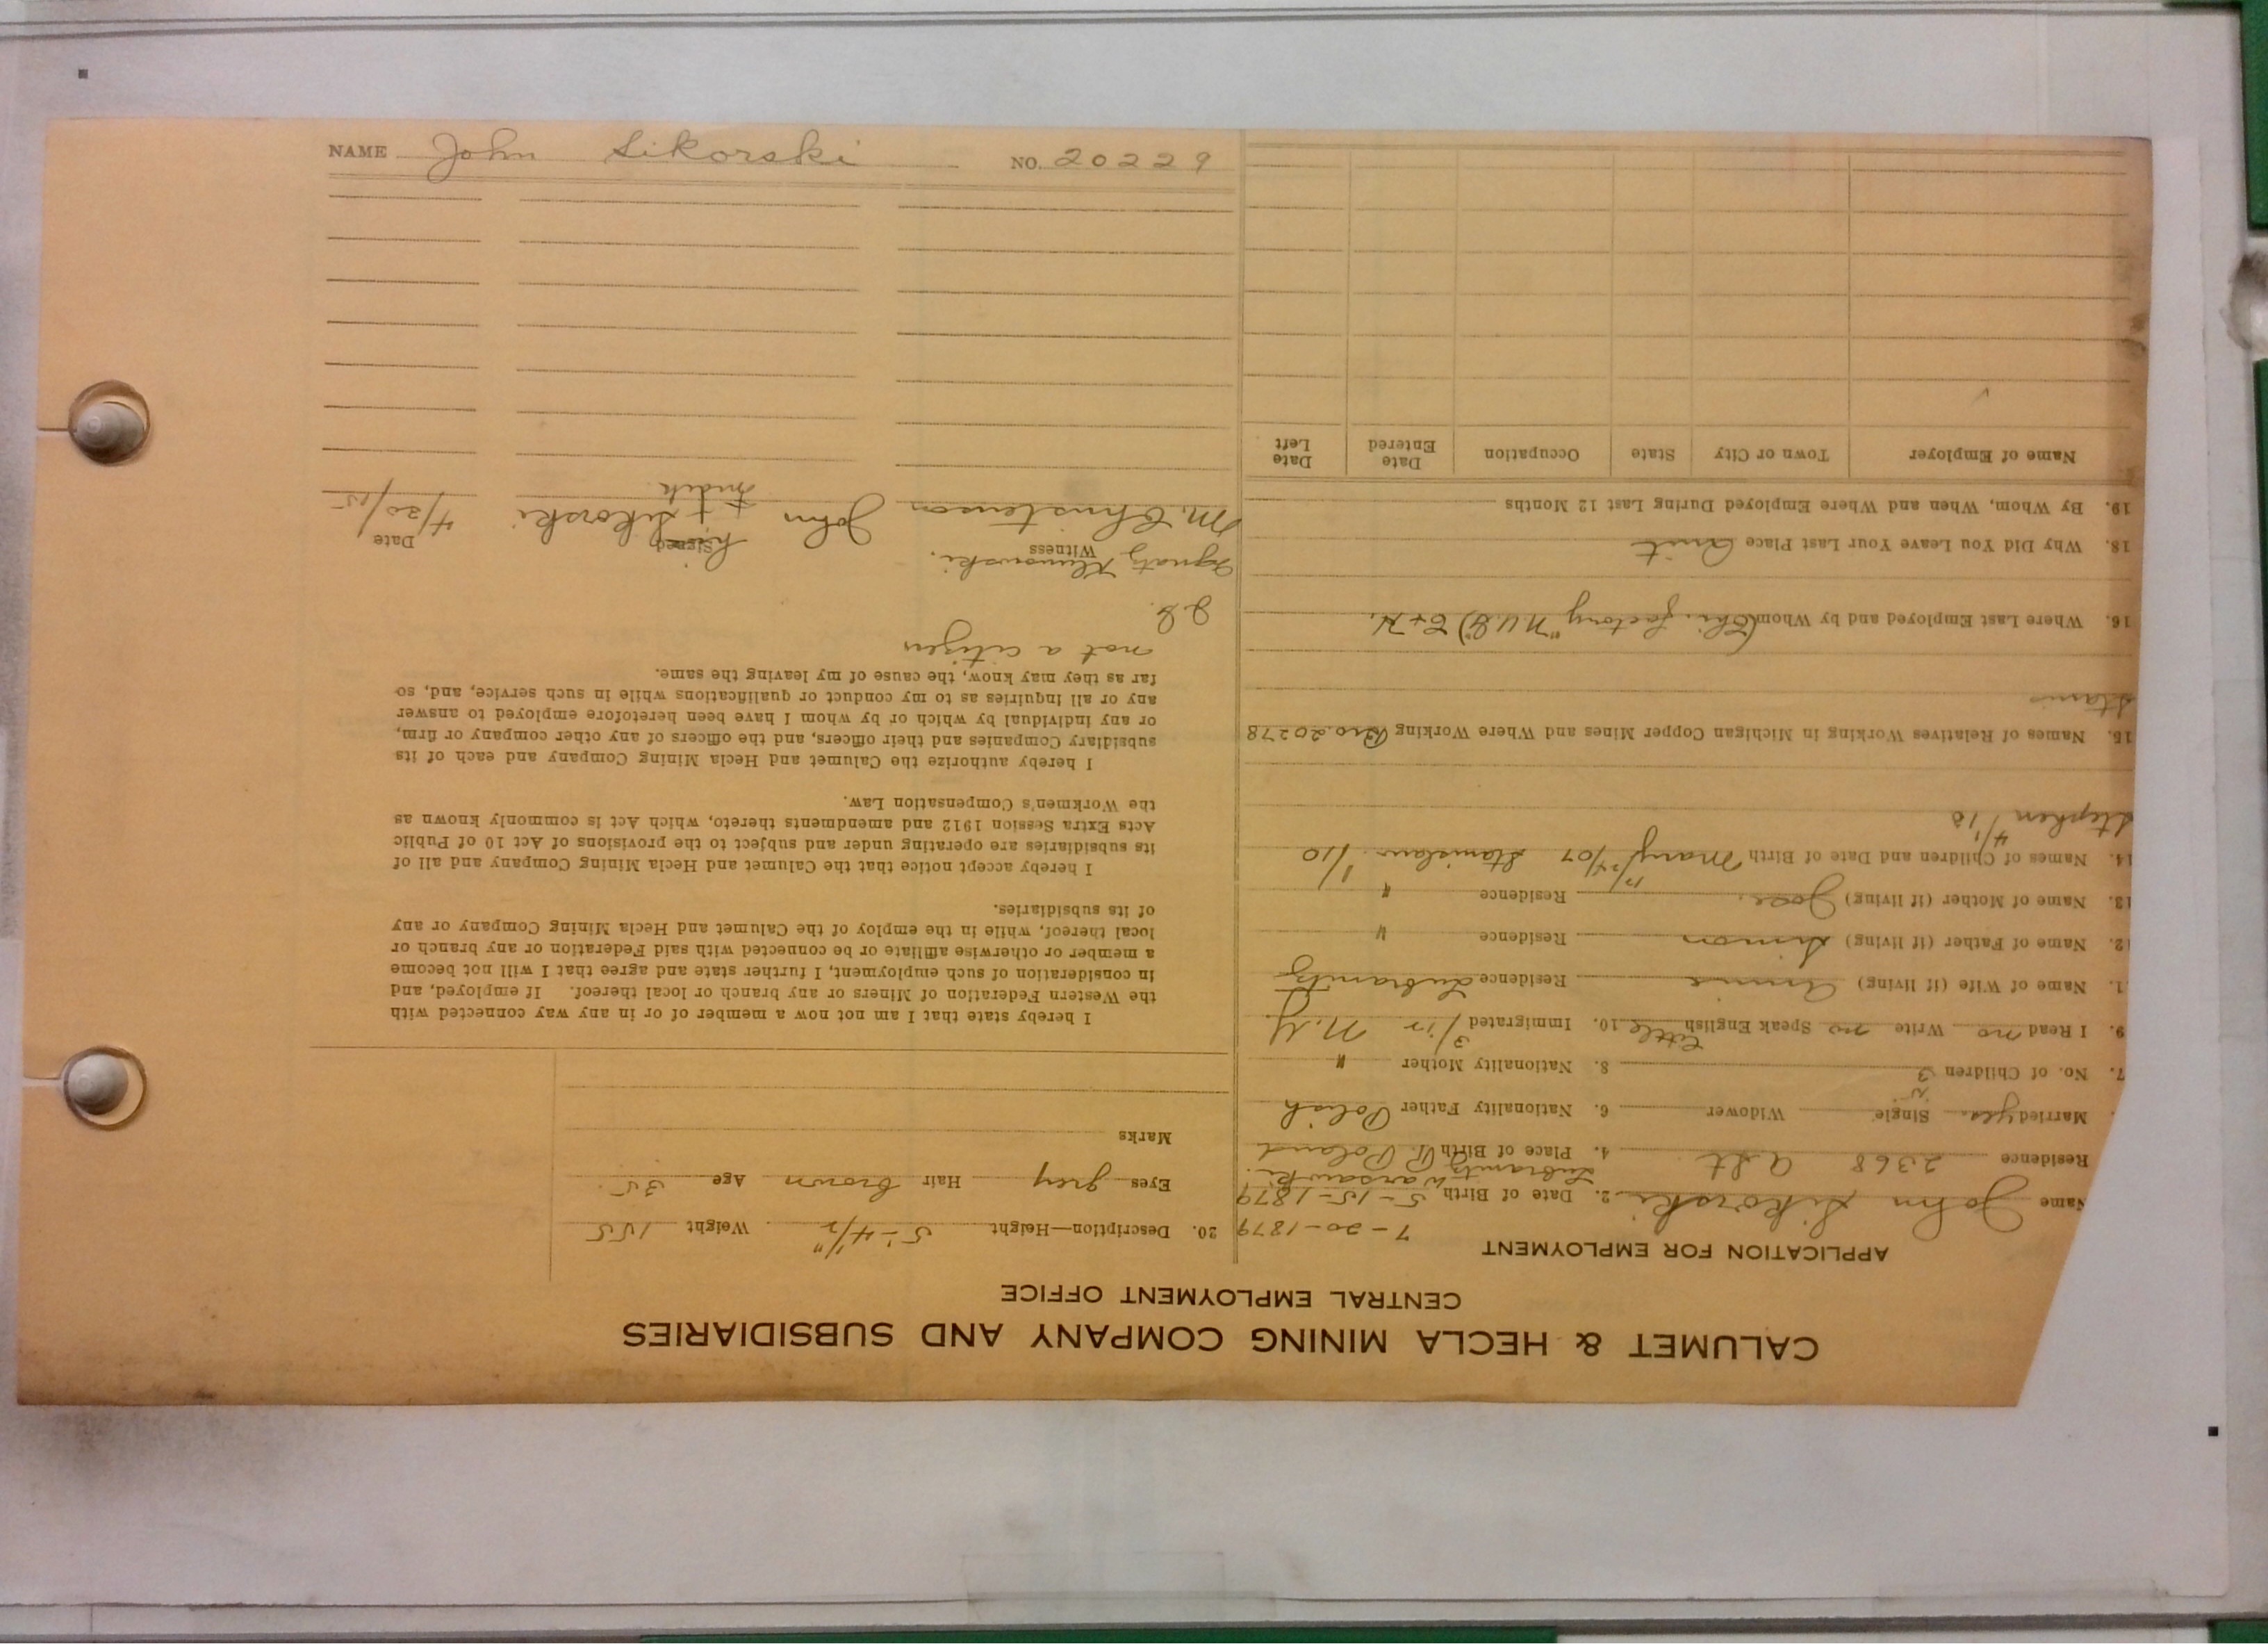 CALUMET & HECLA MINING COMPANY AND SUBSIDIARIES
CENTRAL EMPLOYMENT OFFICE
APPLICATION FOR EMPLOYMENT
7-20-1879
Name John Sikorski 2. Date of Birth 5-15-1879
Lubranitz Warsawski.
Residence 2368 A St. 4. Place of Birth R. Poland
Married yes. Single Widower 6. Nationality Father Polish
7. No. of Children 3 8. Nationality Mother "
9. I Read no Write no Speak English little 10. Immigrated 3/12 N.Y.
1. Name of Wife (if living) Annie Residence Lubranitz
12. Name of Father (if living) Simon Residence "
13. Name of Mother (if living) Jose. Residence "
14. Names of Children and Date of Birth Mary 12/24/07 Stanislaw 1/10
Stephen 4/1/13
15. Names of Relatives Working in Michigan Copper Mines and Where Working Bro. 20278
Stanis
16. Where Last Employed and by Whom (Chi. factory "N.U.G") C+H.
18. Why Did You Leave Your Last Place Quit
19. By Whom, When and Where Employed During Last 12 Months
Name of Employer Town or City State Occupation Date Entered Date Left
20. Description—Height 5'-4 1/2" Weight 155
Eyes grey Hair brown Age 35.
Marks
I hereby state that I am not now a member of or in any way connected with
the Western Federation of Miners or any branch or local thereof. If employed, and
in consideration of such employment, I further state and agree that I will not become
a member or otherwise affiliate or be connected with said Federation or any branch or
local thereof, while in the employ of the Calumet and Hecla Mining Company or any
of its subsidiaries.
I hereby accept notice that the Calumet and Hecla Mining Company and all of
its subsidiaries are operating under and subject to the provisions of Act 10 of Public
Acts Extra Session 1912 and amendments thereto, which Act is commonly known as
the Workmen's Compensation Law.
I hereby authorize the Calumet and Hecla Mining Company and each of its
subsidiary Companies and their officers, and the officers of any other company or firm,
or any individual by which or by whom I have been heretofore employed to answer
any or all inquiries as to my conduct or qualifications while in such service, and, so
far as they may know, the cause of my leaving the same.
not a citizen
Ignatz Klunowski.
Witness Signed Date
M. Christenson John his + Sikorski 4/20/15
mark
NAME John Sikorski NO. 20229